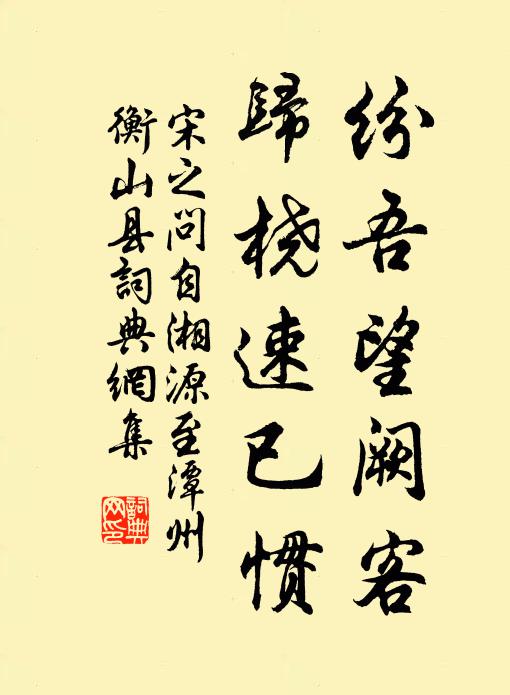 纷吾望阙客
歸桡速已慣
宋之问自湘源至潭州
衡山县詞典網集
詞典
网印